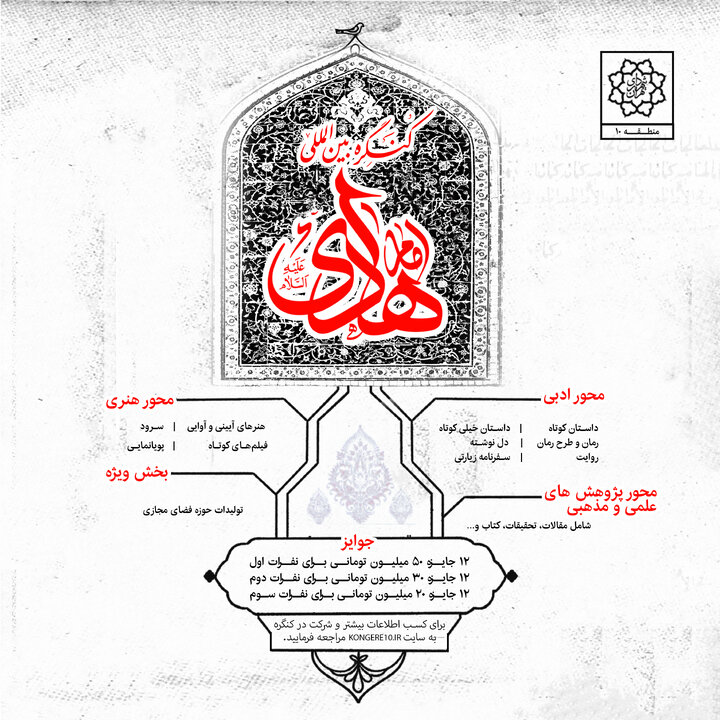 شهرداری تهران
منطقه ۱۰
کنگره بین‌المللی
امام هادی
عَلَیْهِ السَّلَام
محور ادبی
داستان کوتاه | داستان خیلی کوتاه
رمان و طرح رمان | دل نوشته
روایت | سفرنامه زیارتی
محور پژوهش های
علمی و مذهبی
شامل مقالات، تحقیقات، کتاب و...
محور هنری
هنرهای آیینی و آوایی | سرود
فیلم‌های کوتاه | پویانمایی
بخش ویژه
تولیدات حوزه فضای مجازی
جوایز
۱۲ جایزه ۵۰ میلیون تومانی برای نفرات اول
۱۲ جایزه ۳۰ میلیون تومانی برای نفرات دوم
۱۲ جایزه ۲۰ میلیون تومانی برای نفرات سوم
برای کسب اطلاعات بیشتر و شرکت در کنگره
به سایت KONGERE10.IR مراجعه فرمایید.